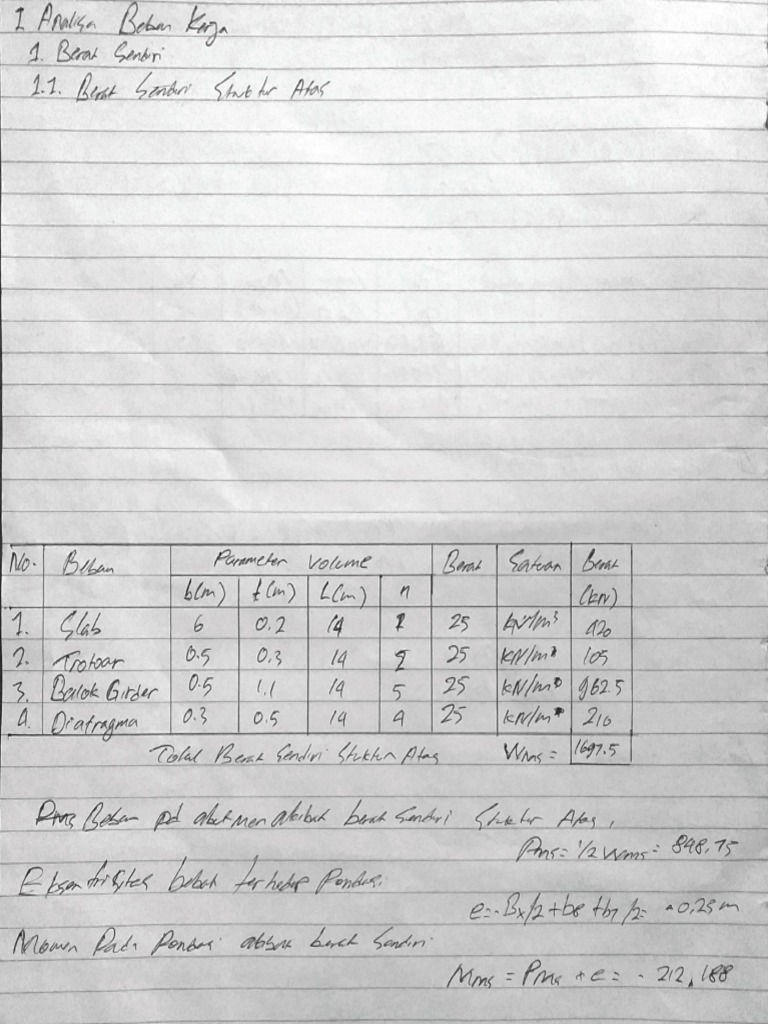 I Analisa Beban Kerja
1. Berat Sendiri
1.1. Berat Sendiri Struktur Atas
No. Beban Parameter Volume Berat Satuan Berat
b(m) t(m) L(m) n (kN)
1. Slab 6 0.2 14 1 25 kN/m³ 420
2. Trotoar 0.5 0.3 14 2 25 kN/m³ 105
3. Balok Girder 0.5 1.1 14 5 25 kN/m³ 962.5
4. Diafragma 0.3 0.5 14 4 25 kN/m³ 210
Total Berat Sendiri Stuktur Atas Wms = 1697.5
Beban pd abutmen akibat berat sendiri Struktur Atas,
Pms = 1/2 Wms = 848,75
Eksentrisitas beban terhadap Pondasi
e = -Bx/2 + b8 + b7/2 = -0,25 m
Momen Pada Pondasi akibat berat Sendiri
Mms = Pms * e = -212,188